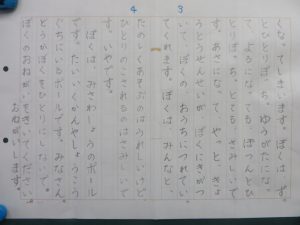 3
くなってしまいます。ぼくは、ずっ
とひとりぼっち。ゆうがたになっ
て、よるになっても、ぽつんとひ
とりぼっち。とてもさみしいで
す。あさになって、やっと、きょ
うとうせんせいが、ぼくにきがつ
いて、ぼくのおうちにつれてい
てくれます。ぼくは、みんなと
4
たのしくあそぶのはうれしいけど
ひとりのこされるのはさみしいで
す。いやです。
ぼくは、みさわしょうのボール
です。たいいくかんやしょうこう
ぐちにいるボールです。みなさん、
どうかぼくをひとりにしないで。
ぼくのおねがいをきいてください。
おねがいします。